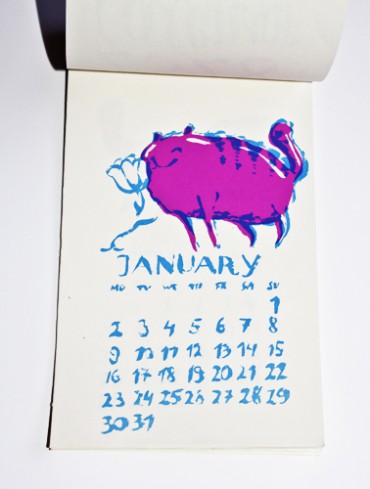 JANUARY
MO TU WE TH FR SA SU
1
2 3 4 5 6 7 8
9 10 11 12 13 14 15
16 17 18 19 20 21 22
23 24 25 26 27 28 29
30 31